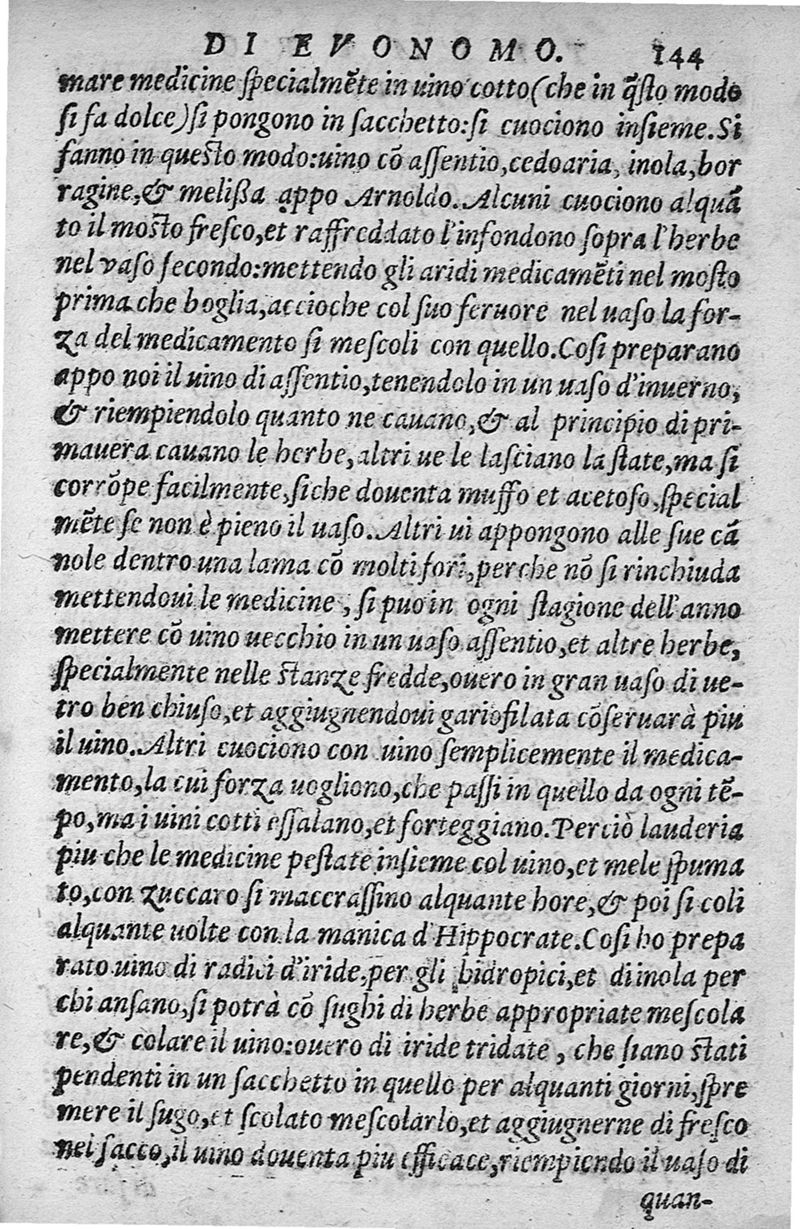 DI EVONOMO. 144
mare medicine ſpecialmẽte in uino cotto (che in q̃ſto modo
ſi fa dolce) ſi pongono in ſacchetto: ſi cuociono inſieme. Si
fanno in queſto modo: uino cõ aſſentio, cedoaria, inola, bor
ragine, & melißa appo Arnoldo. Alcuni cuociono alquã
to il moſto freſco, et raffreddato l'infondono ſopra l'herbe
nel vaſo ſecondo: mettendo gli aridi medicamẽti nel moſto
prima che boglia, accioche col ſuo feruore nel uaſo la for-
za del medicamento ſi meſcoli con quello. Coſi preparano
appo noi il uino di aſſentio, tenendolo in un uaſo d'inuerno,
& riempiendolo quanto ne cauano, & al principio di pri-
mauera cauano le herbe, altri ue le laſciano la ſtate, ma ſi
corrõpe facilmente, ſiche douenta muffo et acetoſo, ſpecial
mẽte ſe non è pieno il uaſo. Altri ui appongono alle ſue cã
nole dentro una lama cõ molti fori, perche nõ ſi rinchiuda
mettendoui le medicine, ſi puo in ogni ſtagione dell'anno
mettere cõ uino uecchio in un uaſo aſſentio, et altre herbe,
ſpecialmente nelle ſtanze fredde, ouero in gran uaſo di ue-
tro ben chiuſo, et aggiugnendoui gariofilata cõſeruarà piu
il uino. Altri cuociono con uino ſemplicemente il medica-
mento, la cui forza uogliono, che paſſi in quello da ogni tẽ-
po, ma i uini cotti eſſalano, et forteggiano. Perciò lauderia
piu che le medicine peſtate inſieme col uino, et mele ſpuma
to, con zuccaro ſi maceraſſino alquante hore, & poi ſi coli
alquante uolte con la manica d'Hippocrate. Coſi ho prepa
rato uino di radici d'iride, per gli hidropici, et di inola per
chi anſano, ſi potrà cõ ſughi di herbe appropriate meſcola
re, & colare il uino: ouero di iride tridate, che ſiano ſtati
pendenti in un ſacchetto in quello per alquanti giorni, ſpre
mere il ſugo, et ſcolato meſcolarlo, et aggiugnerne di freſco
nel ſacco, il uino douenta piu efficace, riempiendo il uaſo di
quan-